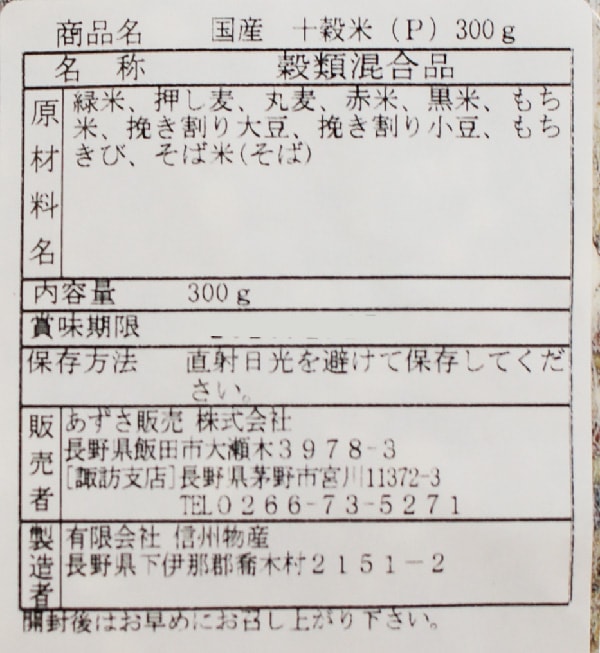 商品名　国産　十穀米（P）300g
名称　穀類混合品
原材料名　緑米、押し麦、丸麦、赤米、黒米、もち
米、挽き割り大豆、挽き割り小豆、もち
きび、そば米(そば)
内容量　300g
賞味期限
保存方法　直射日光を避けて保存してくだ
さい。
販売者　あずさ販売 株式会社
長野県飯田市大瀬木3978-3
[諏訪支店]長野県茅野市宮川11372-3
TEL0266-73-5271
製造者　有限会社 信州物産
長野県下伊那郡喬木村2151-2
開封後はお早めにお召し上がり下さい。